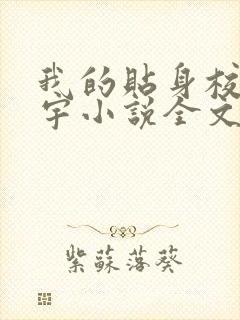 我的貼身校
宇小說全文
紫蘇落葵